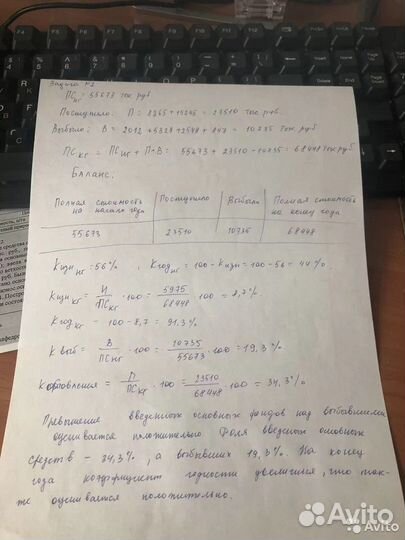 Задача №2
ПСнг = 55673 тыс. руб
Поступило: П = 8265 + 15245 = 23510 тыс. руб.
Выбыло: В = 2012 + 5328 + 2548 + 847 = 10735 тыс. руб
ПСкг = ПСнг + П - В = 55673 + 23510 - 10735 = 68448 тыс руб
Баланс:
Полная стоимость на начало года | Поступило | Выбыло | Полная стоимость на конец года
55673 | 23510 | 10735 | 68448
Кизн нг = 56%, Кгод нг = 100 - Кизн = 100 - 56 = 44%
Кизн кг = И/ПСкг · 100 = 5975/68448 · 100 = 8,7%
Кгод кг = 100 - 8,7 = 91.3%
К выб = В/ПСнг · 100 = 10735/55673 · 100 = 19,3%
Кобновления = П/ПСкг · 100 = 23510/68448 · 100 = 34,3%
Превышение введенных основных фондов над выбывшими
оценивается положительно. Доля введеных основных
средств - 34,3%, а выбывших 19,3%. На конец
года коэффициент годности увеличился, что так-
же оценивается положительно.
Avito
Avito